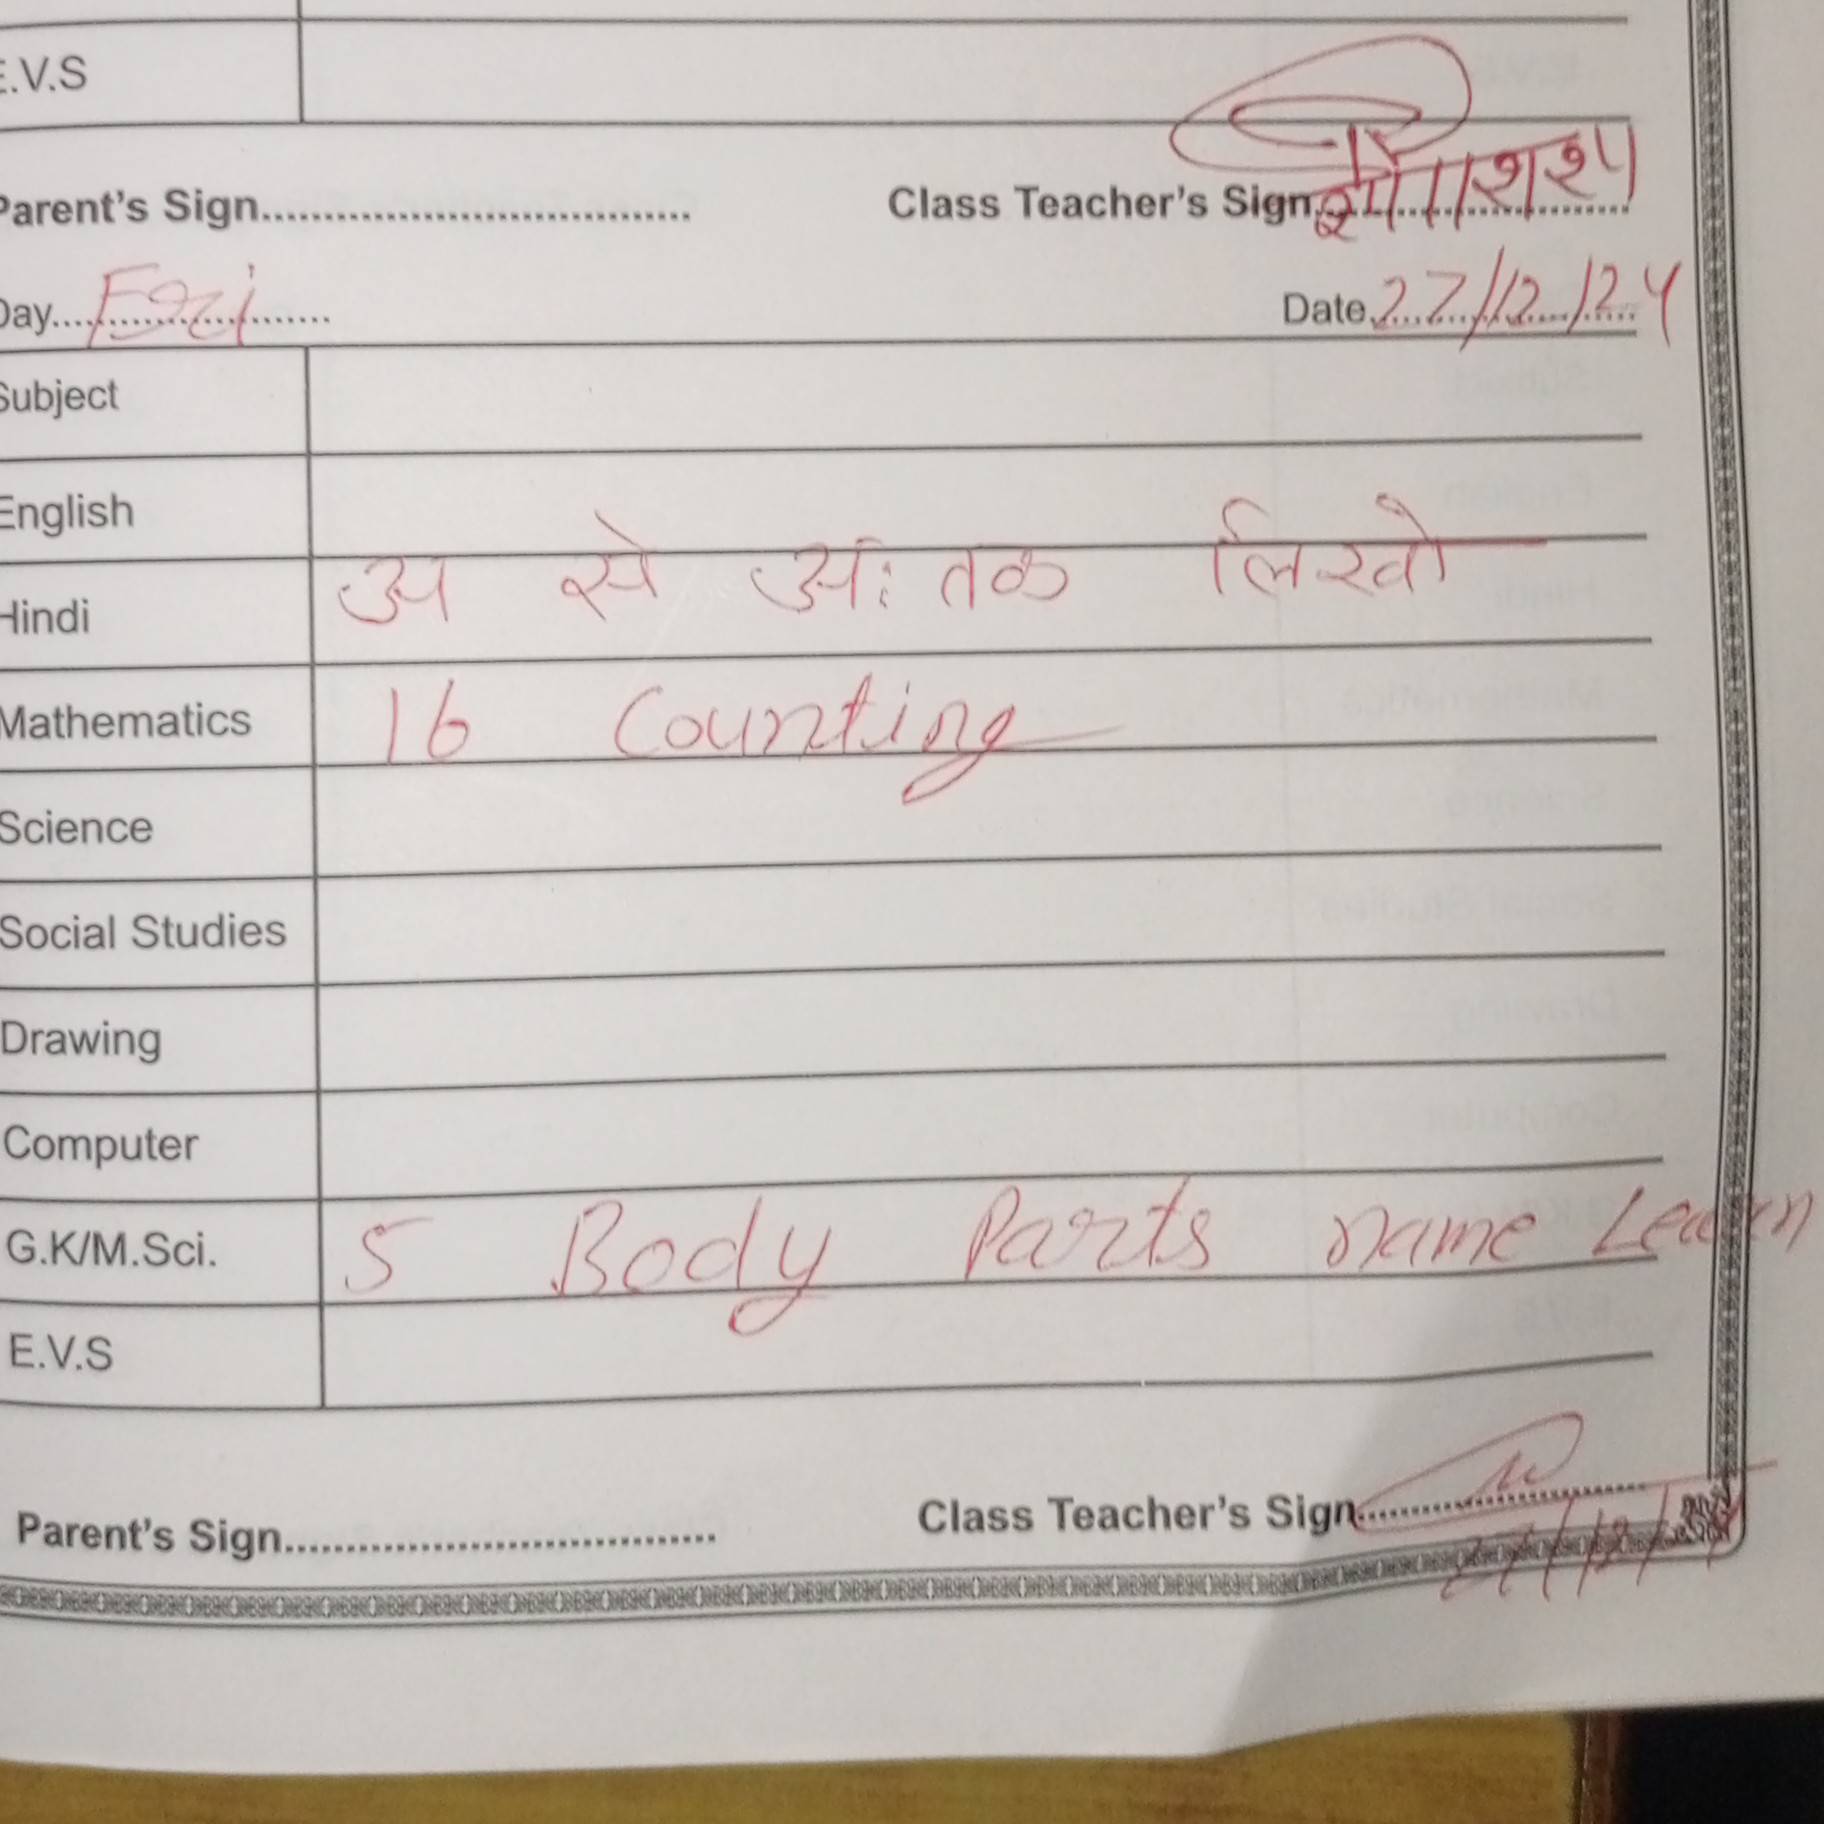 E.V.S
Parent's Sign.................................. Class Teacher's Sign
Day Fri Date 27/12/24
Subject
English
Hindi अ से अः तक लिखो
Mathematics 16 Counting
Science
Social Studies
Drawing
Computer
G.K/M.Sci. 5 Body Parts name Learn
E.V.S
Parent's Sign.................................. Class Teacher's Sign